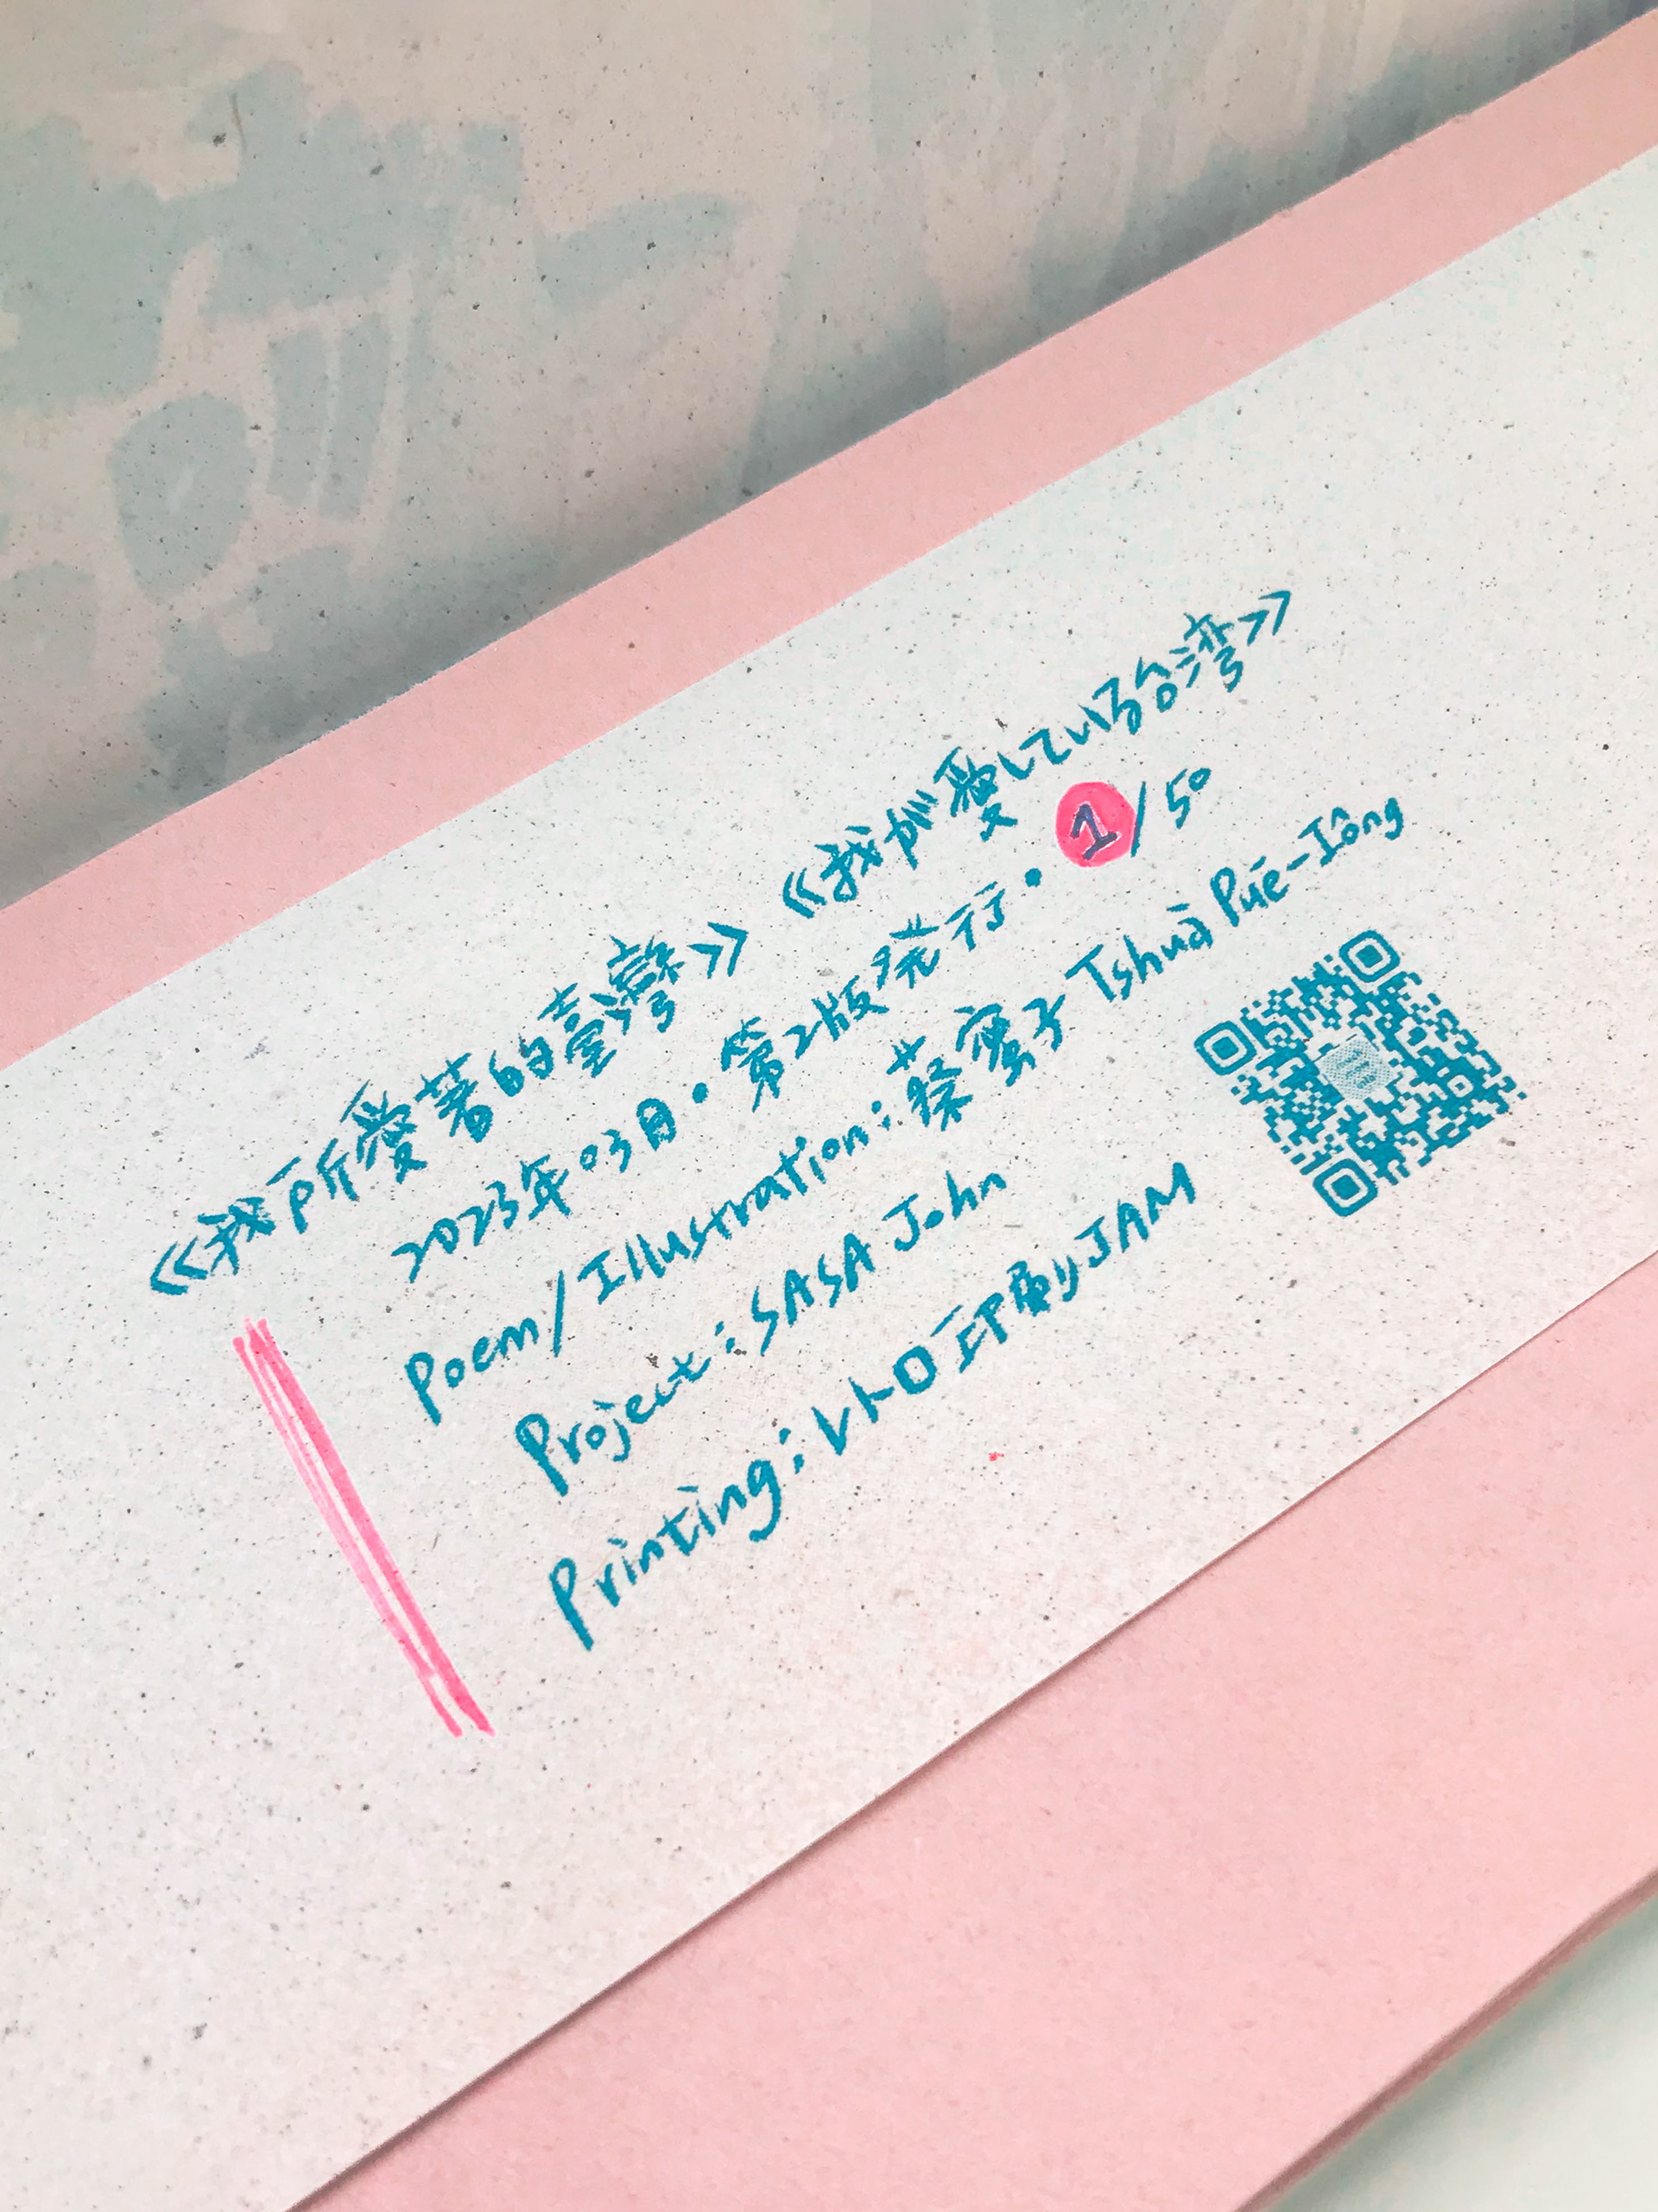 《我所愛著的臺灣》《我が愛している台湾》
2023年03月・第2版発行・1/50
Poem/Illustration:蔡蜜子 Tshuà Pué-Iông
Project:SASA John
Printing:レトロ印刷JAM